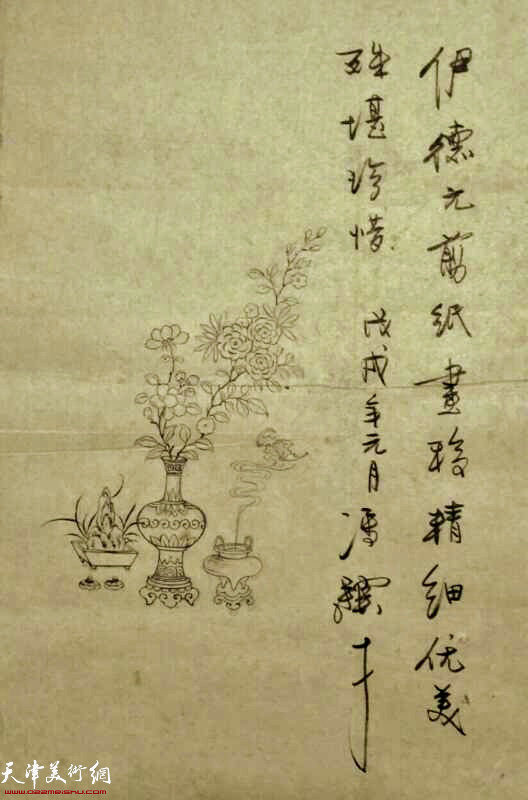 伊德元剪纸画稿精细优美
殊堪珍惜
戊戌年元月冯骥才
天津美術網
www.022meishu.com